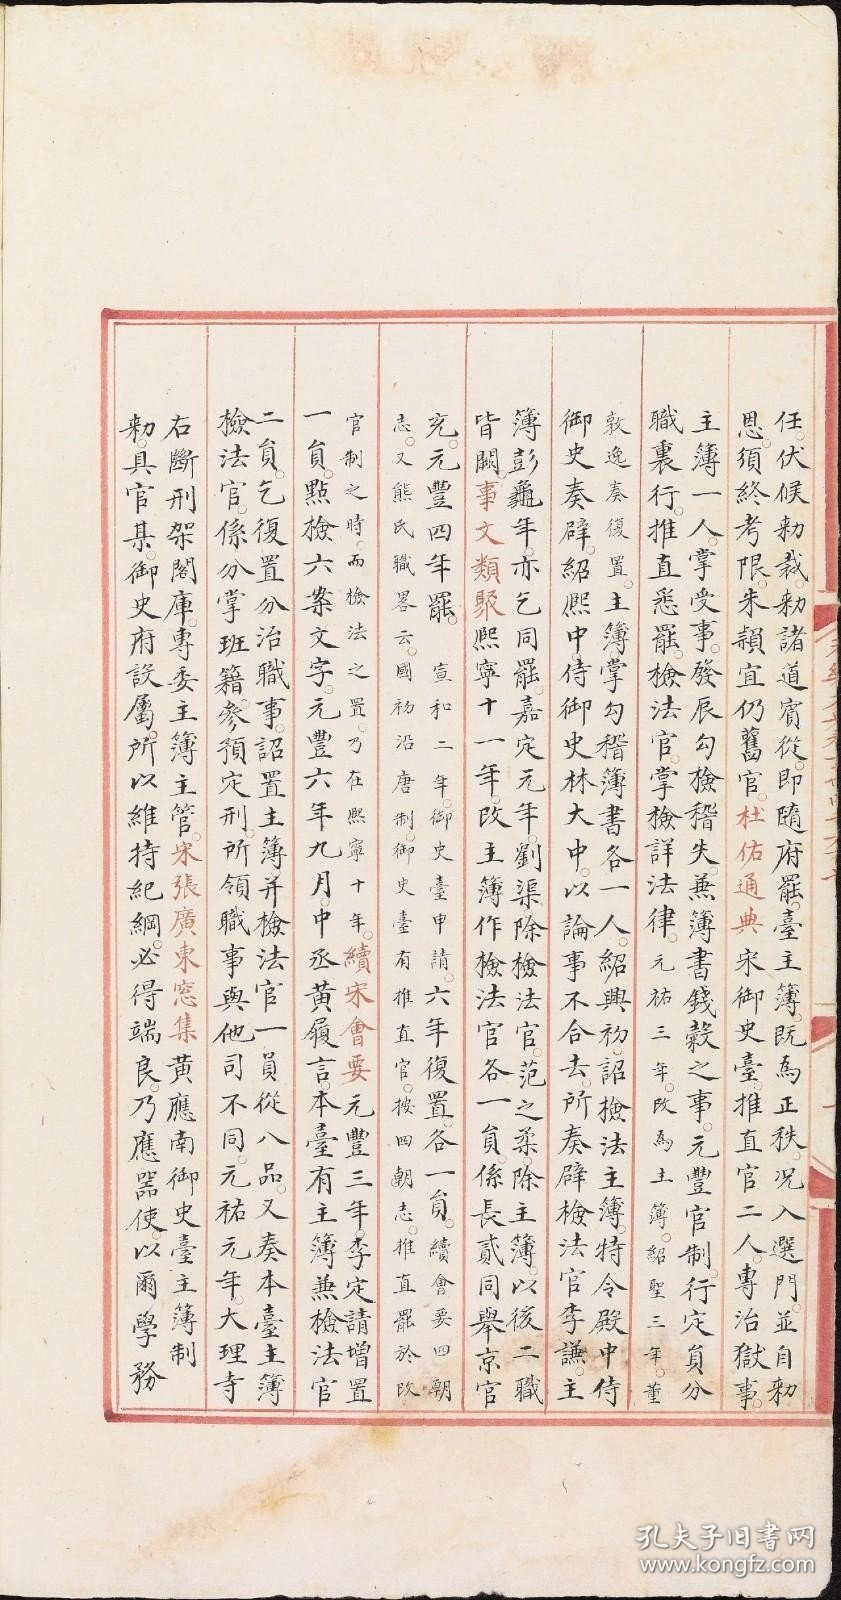 任伏候勑裁勑諸道賓從即隨府罷臺主簿既為正秩況入選門並自勑
恩須終考限朱穎宜仍舊官杜佑通典宋御史臺推直官二人專治獄事
主簿一人掌受事發辰勾檢稽失兼簿書錢穀之事元豐官制行定員分
職裏行推直悉罷檢法官掌檢詳法律元祐三年改為主簿紹聖三年董
敦逸奏復置主簿掌勾稽簿書各一人紹興初詔檢法主簿特令殿中侍
御史奏辟紹熙中侍御史林大中以論事不合去所奏辟檢法官李謙主
簿彭龜年亦乞同罷嘉定元年劉渠除檢法官范之柔除主簿以後二職
皆闕事文類聚熙寧十一年改主簿作檢法官各一員係長貳同舉京官
充元豐四年罷宣和二年御史臺申請六年復置各一員續會要四朝
志又熊氏職畧云國初沿唐制御史臺有推直官按四朝志推直罷於改
官制之時而檢法之置乃在熙寧十年續宋會要元豐三年李定請增置
一員點檢六案文字元豐六年九月中丞黃履言本臺有主簿兼檢法官
二員乞復置分治職事詔置主簿并檢法官一員從八品又奏本臺主簿
檢法官係分掌班籍參預定刑所領職事與他司不同元祐元年大理寺
右斷刑架閣庫專委主簿主管宋張廣東窓集黃應南御史臺主簿制
勑具官某御史府設屬所以維持紀綱必得端良乃應器使以爾學務
孔夫子旧书网
www.kongfz.com